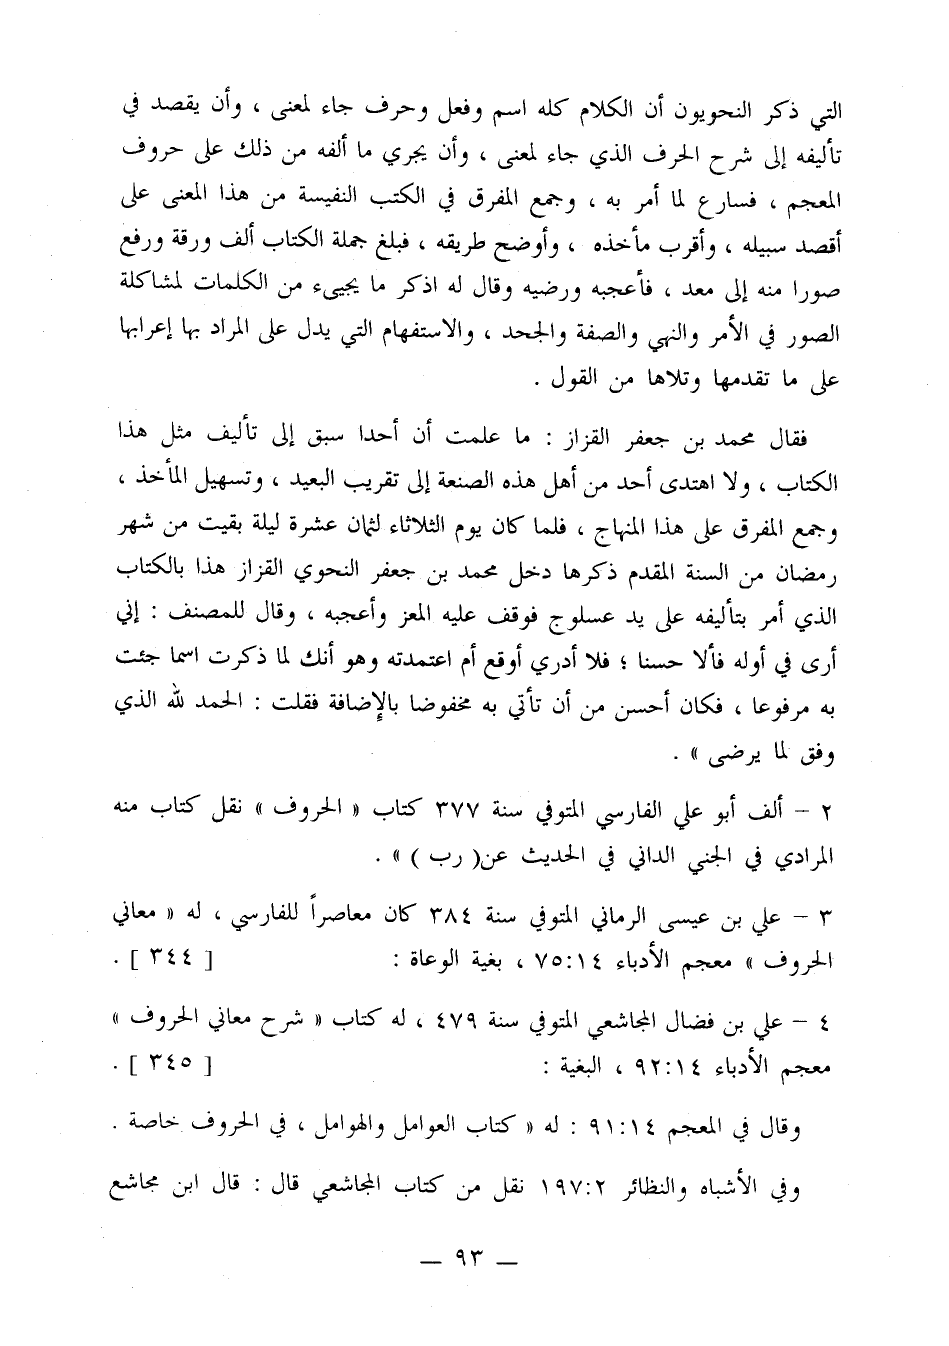 التي ذكر النحويون أن الكلام كله اسم وفعل وحرف جاء لمعنى ، وأن يقصد في
تأليفه إلى شرح الحرف الذي جاء لمعنى ، وأن يجري ما ألفه من ذلك على حروف
المعجم ، فسارع لما أمر به ، وجمع المفرق في الكتب النفيسة من هذا المعنى على
أقصد سبيله ، وأقرب مأخذه ، وأوضح طريقه ، فبلغ جملة الكتاب ألف ورقة ورفع
صورا منه إلى معد ، فأعجبه ورضيه وقال له اذكر ما يجيىء من الكلمات لمشاكلة
الصور في الأمر والنهي والصفة والجحد ، والاستفهام التي يدل على المراد بها إعرابها
على ما تقدمها وتلاها من القول .
فقال محمد بن جعفر القزاز : ما علمت أن أحدا سبق إلى تأليف مثل هذا
الكتاب ، ولا اهتدى أحد من أهل هذه الصنعة إلى تقريب البعيد ، وتسهيل المأخذ ،
وجمع المفرق على هذا المنهاج ، فلما كان يوم الثلاثاء لثمان عشرة ليلة بقيت من شهر
رمضان من السنة المقدم ذكرها دخل محمد بن جعفر النحوي القزاز هذا بالكتاب
الذي أمر بتأليفه على يد عسلوج فوقف عليه المعز وأعجبه ، وقال للمصنف : إني
أرى في أوله فألا حسنا ؛ فلا أدري أوقع أم اعتمدته وهو أنك لما ذكرت اسما جئت
به مرفوعا ، فكان أحسن من أن تأتي به مخفوضا بالإضافة فقلت : الحمد لله الذي
وفق لما يرضى » .
٢ – ألف أبو علي الفارسي المتوفي سنة ٣٧٧ كتاب « الحروف » نقل كتاب منه
المرادي في الجني الداني في الحديث عن( رب ) » .
٣ – علي بن عيسى الرماني المتوفي سنة ٣٨٤ كان معاصراً للفارسي ، له « معاني
الحروف » معجم الأدباء ٧٥:١٤ ، بغية الوعاة : [ ٣٤٤ ] .
٤ – علي بن فضال المجاشعي المتوفي سنة ٤٧٩ ، له كتاب « شرح معاني الحروف »
معجم الأدباء ٩٢:١٤ ، البغية : [ ٣٤٥ ] .
وقال في المعجم ٩١:١٤ : له « كتاب العوامل والهوامل ، في الحروف خاصة .
وفي الأشباه والنظائر ١٩٧:٢ نقل من كتاب المجاشعي قال : قال ابن مجاشع
— ٩٣ —